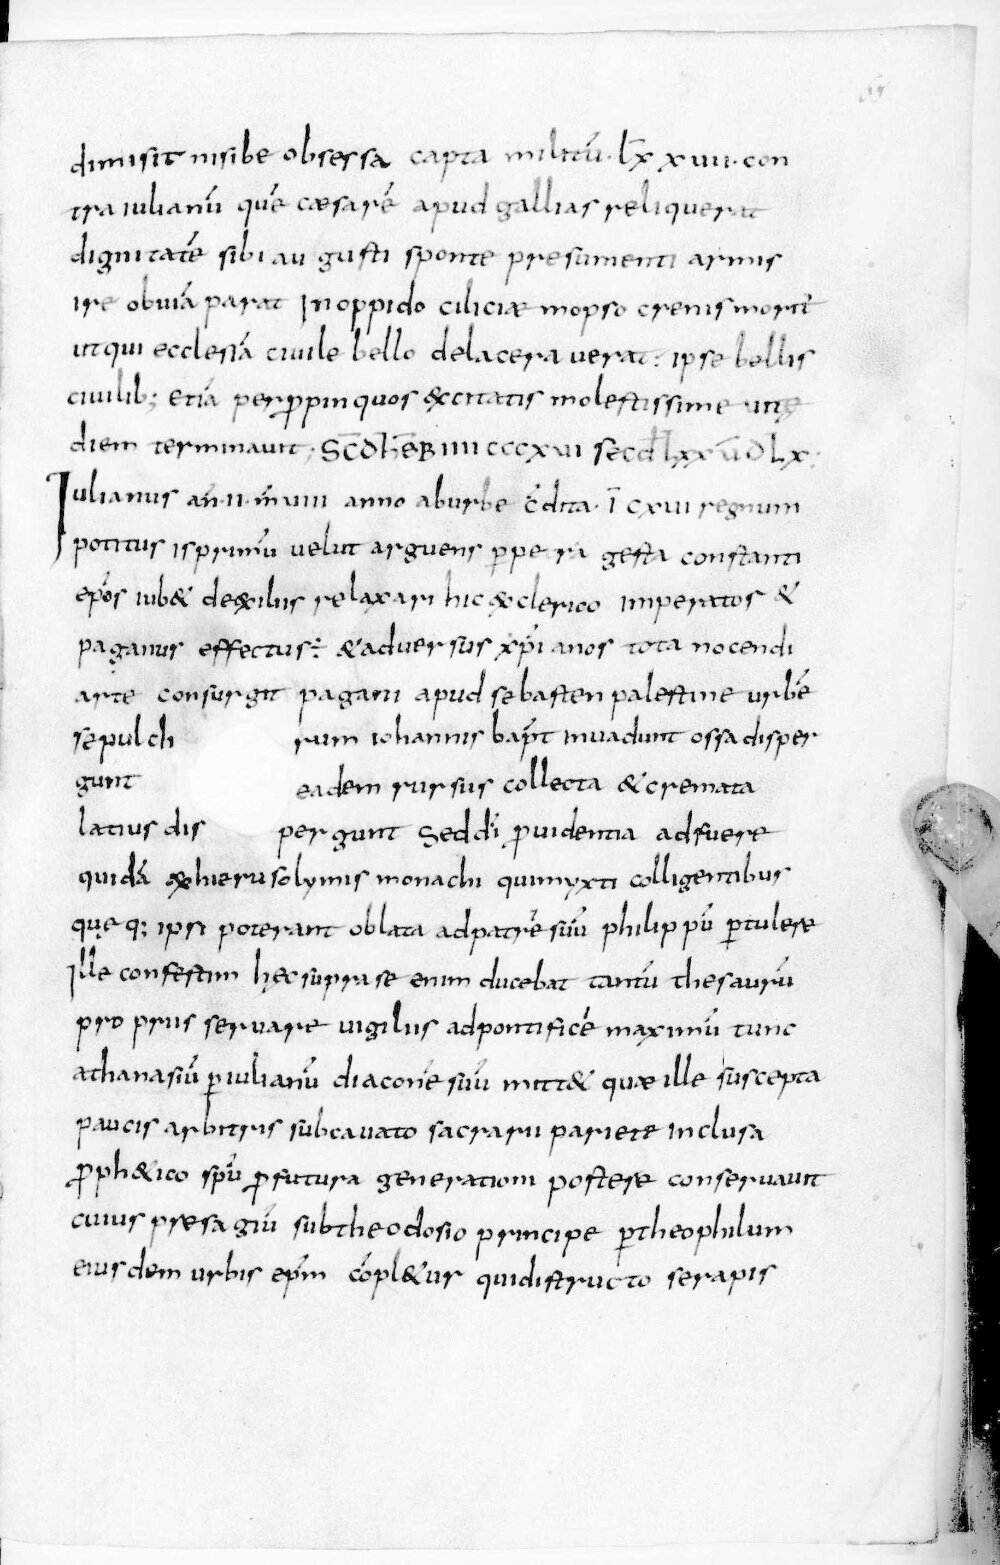 dimisit nisibe obsessa capta militũ · lx̅x̅ x uii · con
tra iulianũ quẽ cæsarẽ apud gallias reliquerat
dignitatẽ sibi au gusti sponte presumenti armis
ire obuiã parat In oppido ciliciæ mopso crenis mortũ
ut qui ecclesiã ciuile bello delacera uerat : ipse bellis
ciuilib; etiã per ꝓpin quos &citatis molestissime uitę
diem terminauit · Sc̅d h̅eb iiii cccxui secd̅ lxx u̅ d lx ·
Iulianus añ · ii · m̃ uiii anno ab urbe c̃dita · ĩ cxui regnum
potitus is primũ uelut arguens ꝑpe ra gesta constanti
ep̃os iub& de exiliis relaxari hic ex clerico imperatos &
paganus effectus : & aduer sũs xp̃i anos tota nocendi
arte consurgit pagani apud sebasten palestine urbẽ
sepulch rum iohannis bap̃t inuadunt ossa disper
gunt eadem rursus collecta & cremata
latius dis pergunt Sed dĩ ꝓuidentia adfuere
quidã ex hierusolymis monachi qui myxti colligentibus
quę q; ipsi poterant oblata ad patrẽ suũ philip pũ ꝑtulere
Ille confestim hęc supra se enim ducebat tantũ thesaurũ
pro priis seruare uigiliis ad pontificẽ maximũ tunc
athanasiũ ꝑ iulianũ diaconẽ suũ mitt& quæ ille suscepta
paucis arbitris sub cauato sacrarii pariete inclusa
ꝓph&ico sp̃ũ ꝓfutura generationi postere conseruauit
cuius præsa giũ sub theodosio principe ꝑ theophilum
eius dem urbis ep̃m cõpl&ur qui distructo serapis